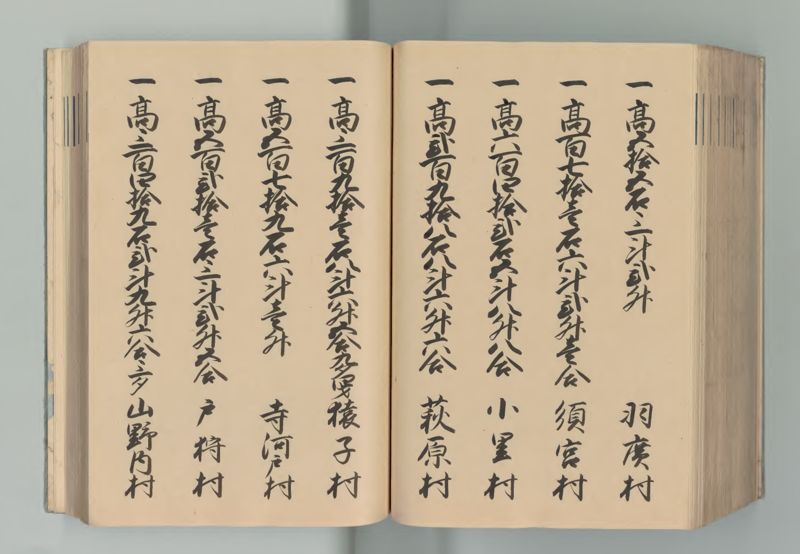 一 高五拾五石三斗弐升 羽廣村
一 高百七拾壱石六斗弐升壱合 須宮村
一 高六百四拾弐石五斗八升八合 小里村
一 高弐百九拾八石八斗六升六合 萩原村
一 高三百九拾壱石八斗六升五合九夕 猿子村
一 高五百七拾九石六斗壱升 寺河戸村
一 高五百弐拾壱石三斗弐升五合 戸狩村
一 高三百四拾九石弐斗九升六合三夕 山野内村